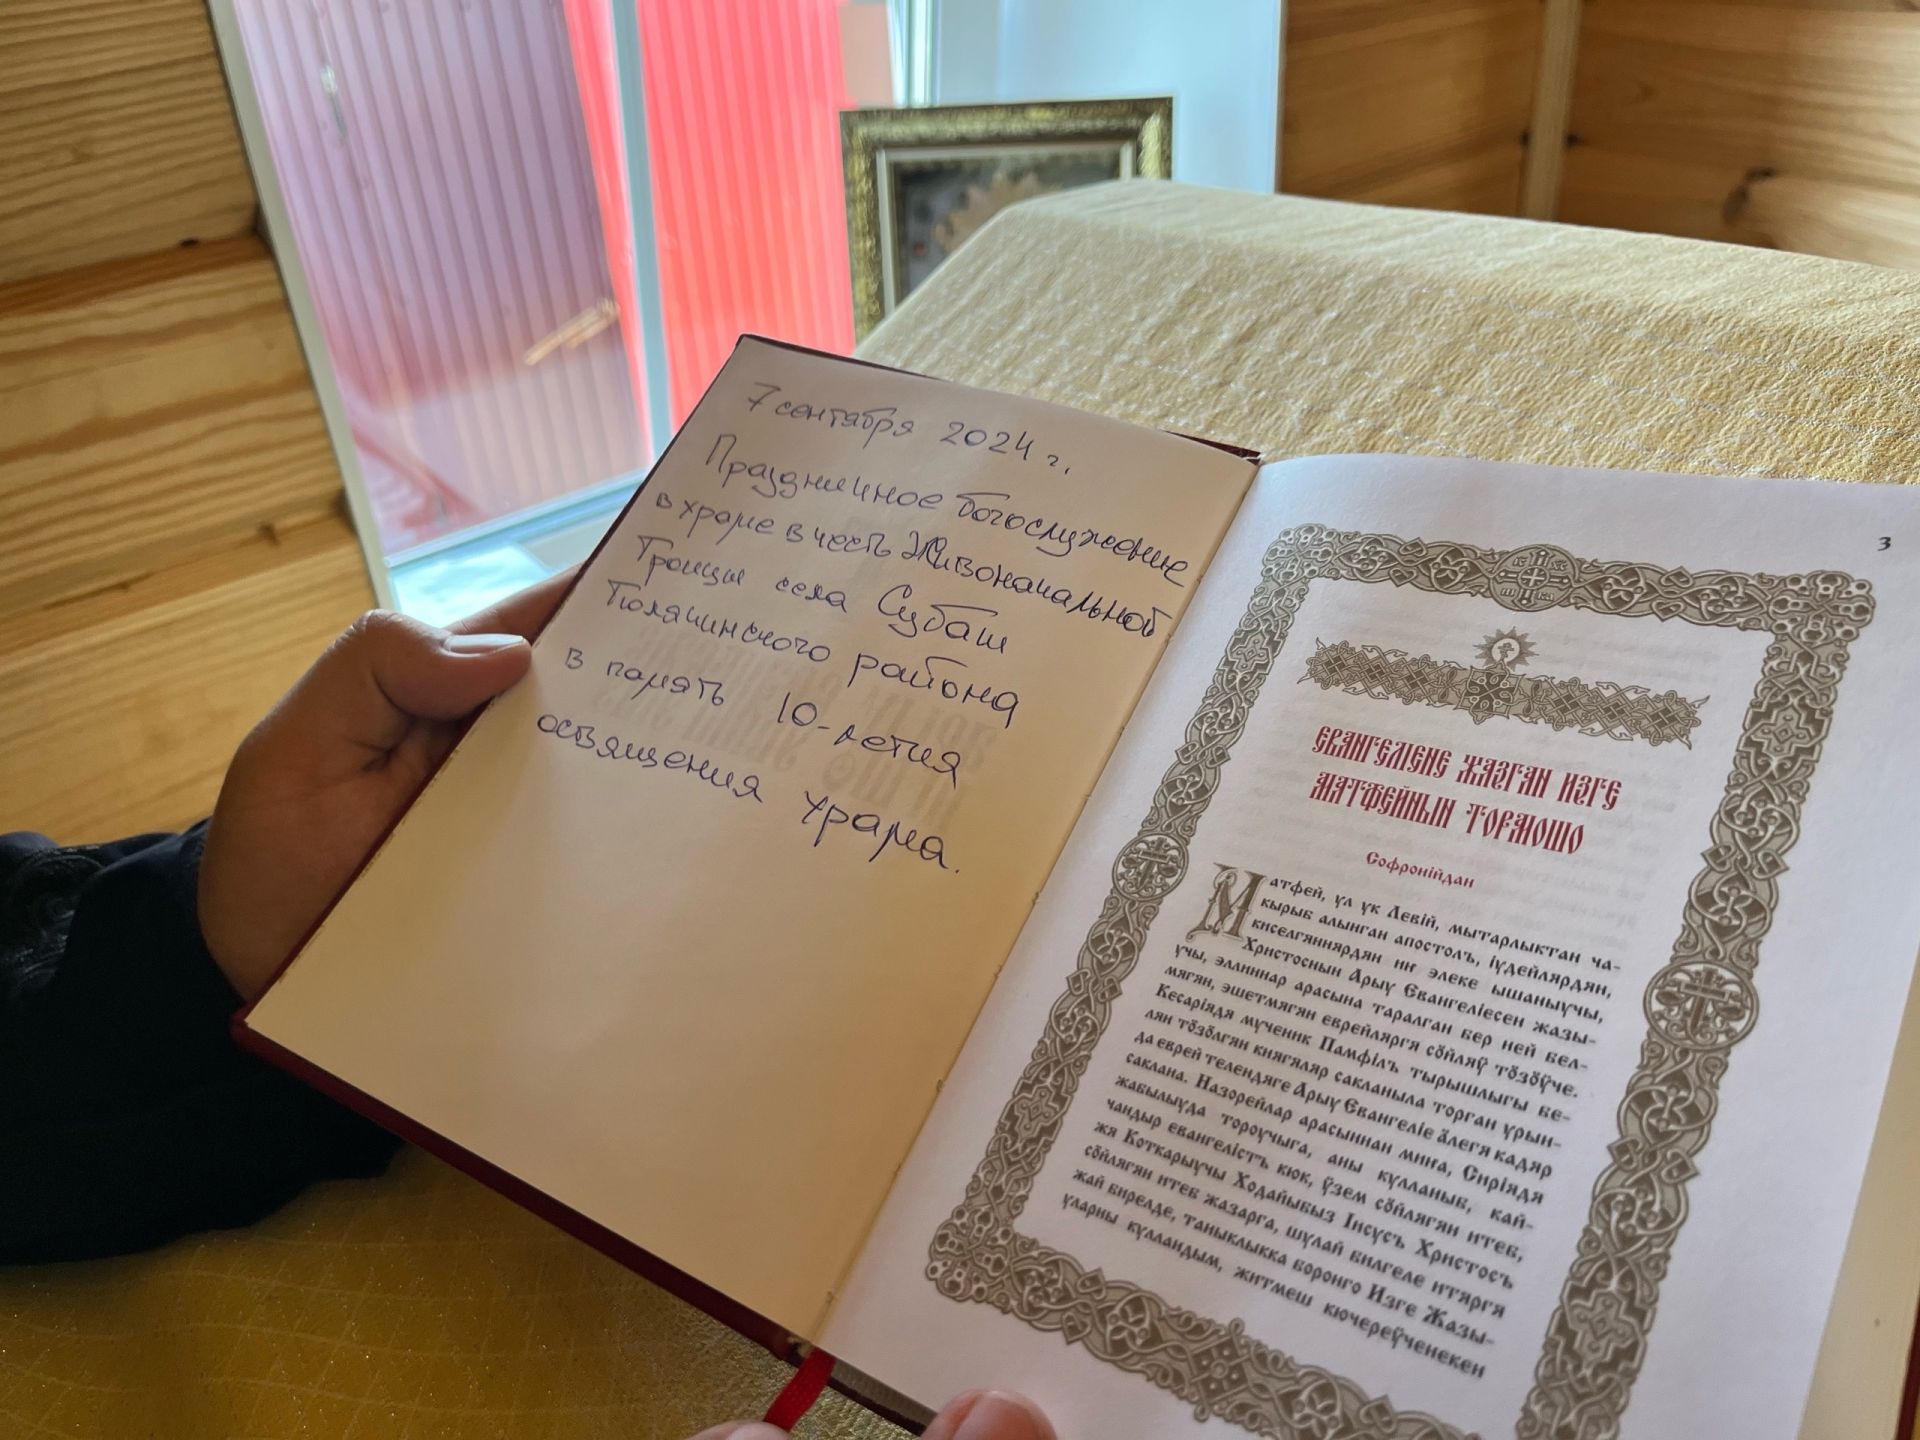 7 сентября 2024 г.
Праздничное богослужение
в храме в честь Живоначальной
Троицы села Субаш
Тюлячинского района
в память 10-летия
освящения храма.
3
ЕВАНГЕЛІЕНЕ ЖАЗГАН ИЗГЕ
МАТФЕЙНЫН ТОРМОШО
Софронійдан
Матфей, ул ук Левій, мытарлыктан ча-
кырыб алынган апостолъ, іудейлярдян,
кнселгянняρдян иҥ элеке ышаныучы,
Христоснын Арыу Евангеліесен жазы-
учы, эллиннар арасына таралган бер ней бел-
мягян, эшетмягян еврейляргя сӧйляӱ тӧзӧӱче.
Кесаріядя мученик Памфілъ тырышлыгы бе-
лян тӧзӧлгян княгяляр сакланыла торган урын-
да еврей телендяге Арыу Евангеліе ӓлегя кадяр
саклана. Назорейлар арасыннан миҥа, Сиріядя
жабылыуда тороучыга, аны кулланыб, кай-
чандыр евангелістъ кюк, ӱзем сӧйлягян итеб,
жя Коткарыучы Ходайыбыз Іисусъ Христосъ
сӧйлягян итеб жазарга, шулай билгеле итяргя
жай бирелде, таныклыкка боронго Изге Жазы-
уларны кулландым, житмеш кючереӱченекен